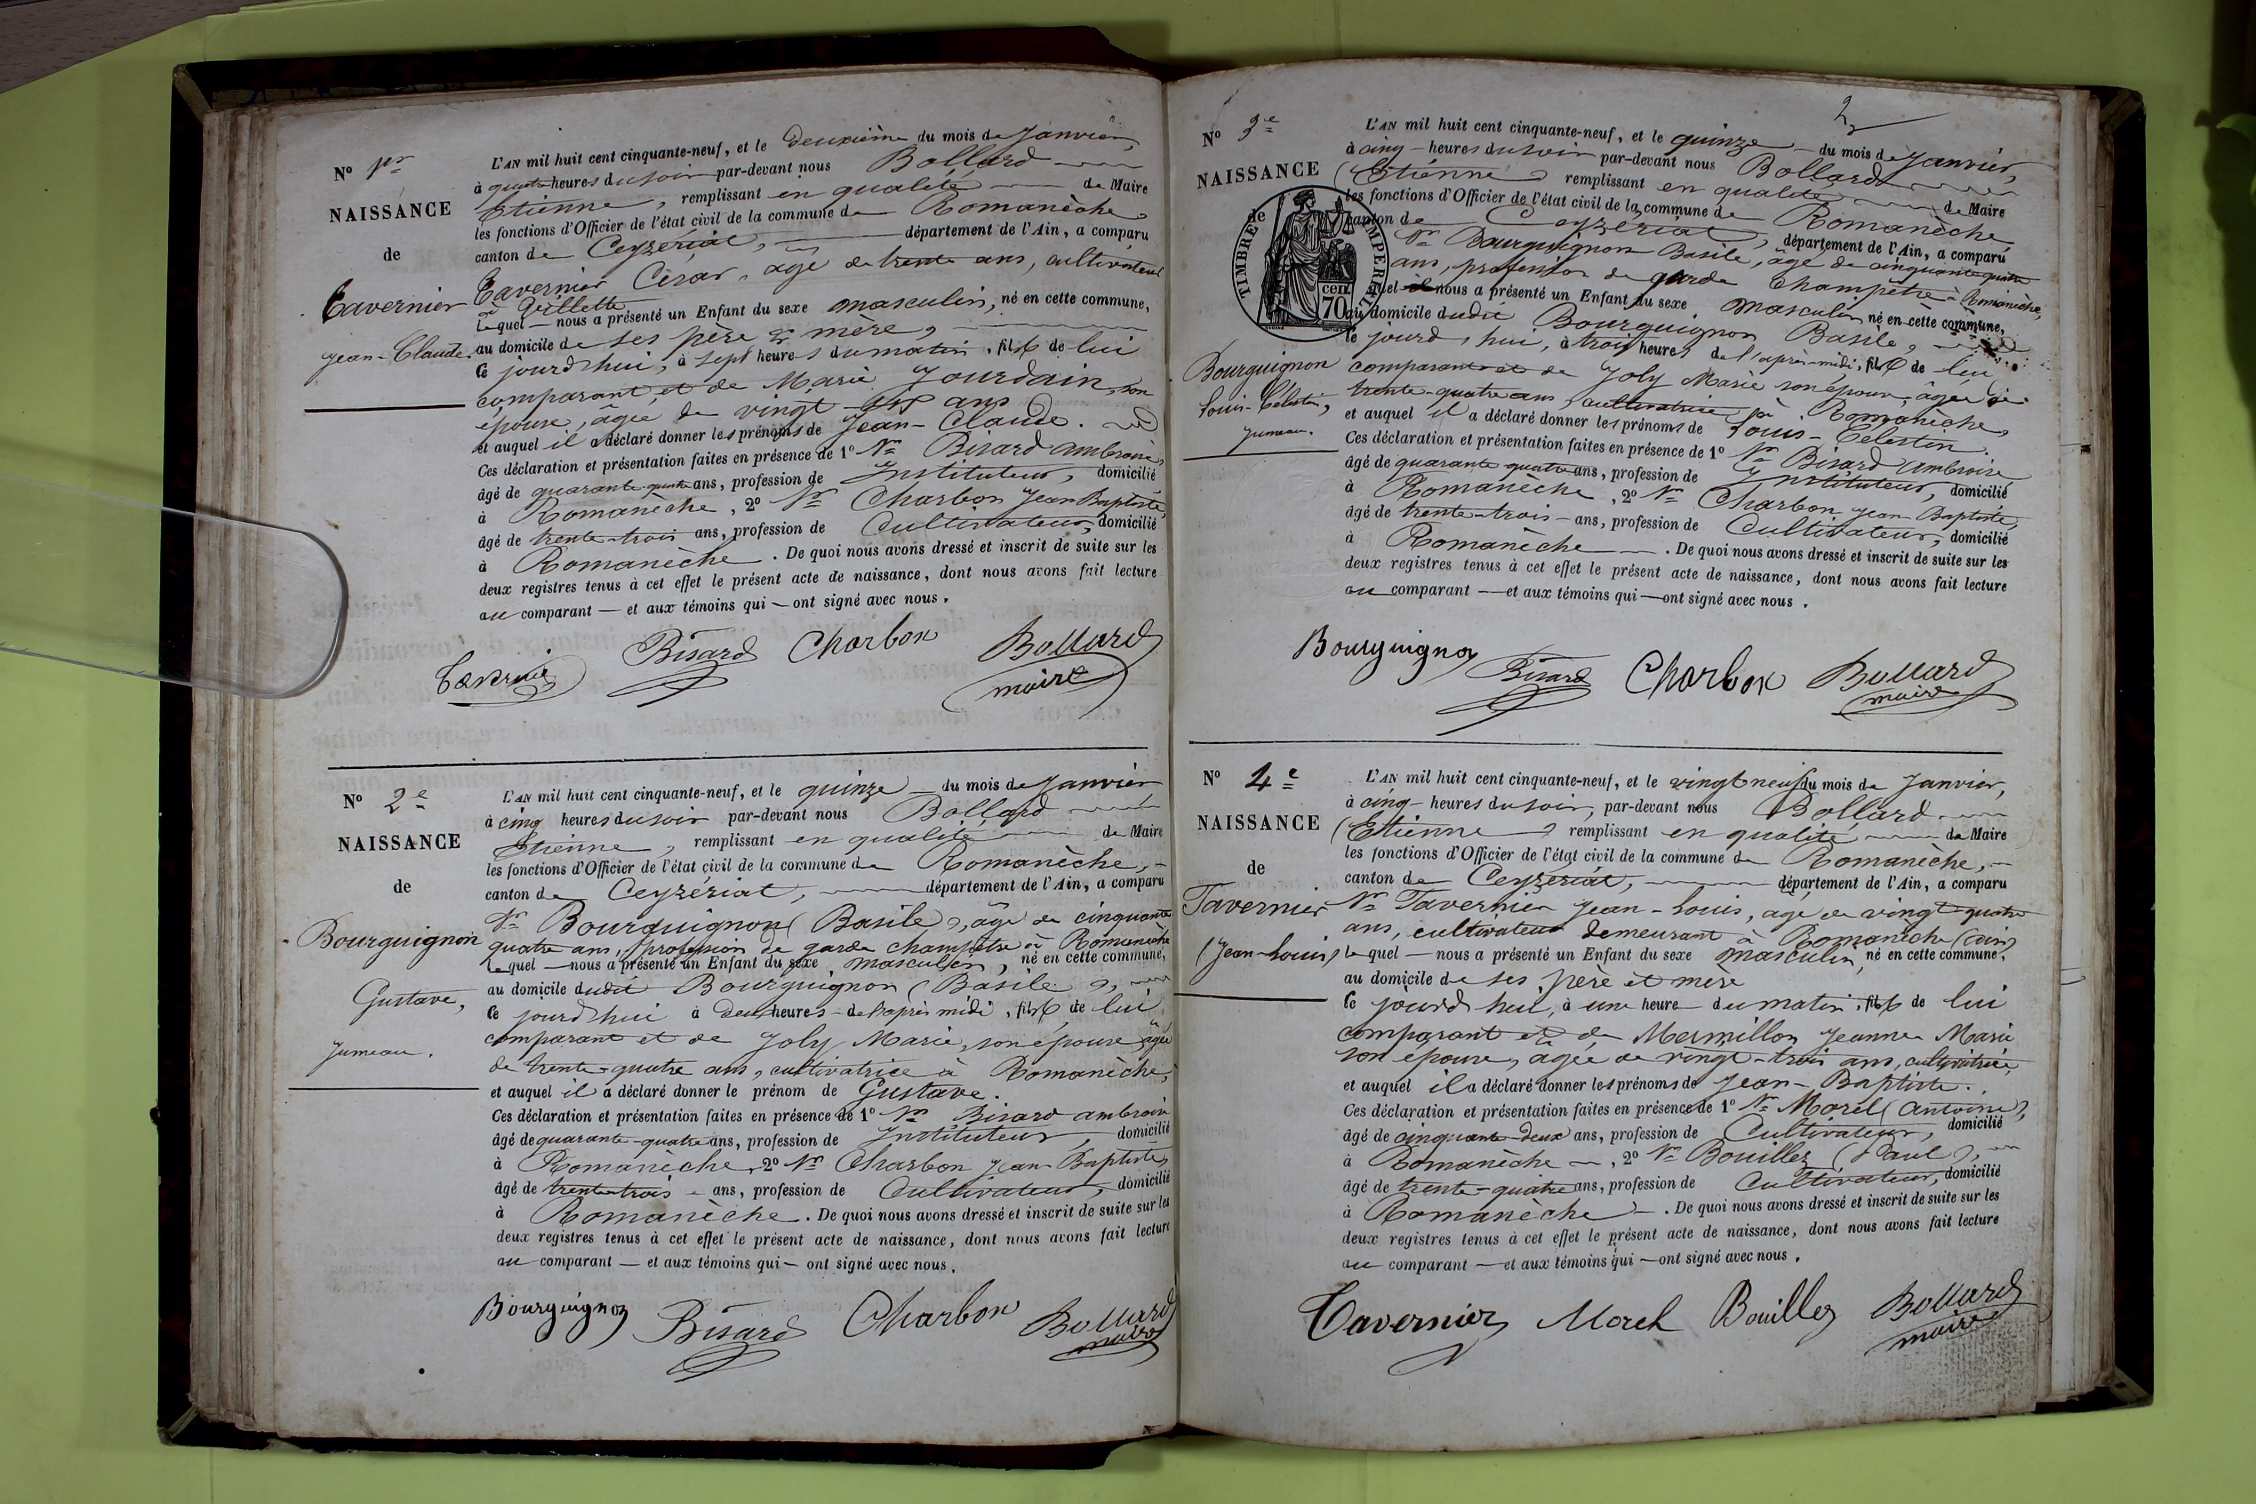 N° 1er
NAISSANCE
de
Tavernier
Jean-Claude.
L'AN mil huit cent cinquante-neuf, et le deuxième du mois de Janvier,
à quatre heures du soir par-devant nous Bollard
Etienne, remplissant en qualité de Maire
les fonctions d'Officier de l'état civil de la commune de Romanèche,
canton de Ceyzériat, département de l'Ain, a comparu
Tavernier César, agé de trente ans, cultivateur
à Villette
lequel nous a présenté un Enfant du sexe masculin, né en cette commune,
au domicile de ses père & mère,
ce jourd'hui, à sept heures du matin, fils de lui
comparant et de Marie Jourdain, son
épouse, âgée de vingt-six ans
et auquel il a déclaré donner les prénoms de Jean-Claude.
Ces déclaration et présentation faites en présence de 1° Mr Bisard ambroise,
âgé de quarante-quatre ans, profession de Instituteur, domicilié
à Romanèche, 2° Mr Charbon Jean Baptiste,
âgé de trente-trois ans, profession de Cultivateur, domicilié
à Romanèche. De quoi nous avons dressé et inscrit de suite sur les
deux registres tenus à cet effet le présent acte de naissance, dont nous avons fait lecture
au comparant — et aux témoins qui — ont signé avec nous.
Tavernier Bisard Charbon Bollard
maire
N° 2e
NAISSANCE
de
Bourguignon
Gustave,
Jumeau.
L'AN mil huit cent cinquante-neuf, et le quinze du mois de Janvier
à cinq heures du soir par-devant nous Bollard
Etienne, remplissant en qualité de Maire
les fonctions d'Officier de l'état civil de la commune de Romanèche,
canton de Ceyzériat, département de l'Ain, a comparu
Mr Bourguignon (Basile), âgé de cinquante
quatre ans, profession de garde champêtre à Romanèche
lequel — nous a présenté un Enfant du sexe masculin, né en cette commune,
au domicile dudit Bourguignon (Basile),
ce jourd'hui à deux heures de l'après midi, fils de lui
comparant et de Joly Marie, son épouse âgée
de trente-quatre ans, cultivatrice à Romanèche,
et auquel il a déclaré donner le prénom de Gustave.
Ces déclaration et présentation faites en présence de 1° Mr Bisard ambroise
âgé de quarante-quatre ans, profession de Instituteur, domicilié
à Romanèche, 2° Mr Charbon Jean Baptiste,
âgé de trente-trois ans, profession de Cultivateur, domicilié
à Romanèche. De quoi nous avons dressé et inscrit de suite sur les
deux registres tenus à cet effet le présent acte de naissance, dont nous avons fait lecture
au comparant — et aux témoins qui — ont signé avec nous.
Bourguignon Bisard Charbon Bollard
maire
2
N° 3e
NAISSANCE
de
TIMBRE IMPERIAL
70 CEN.
Bourguignon
Louis-Célestin,
Jumeau.
L'AN mil huit cent cinquante-neuf, et le quinze du mois de Janvier,
à cinq heures du soir par-devant nous Bollard
(Etienne) remplissant en qualité de Maire
les fonctions d'Officier de l'état civil de la commune de Romanèche,
canton de Ceyzériat, département de l'Ain, a comparu
Mr Bourguignon Basile, âgé de cinquante-quatre
ans, profession de garde champêtre à Romanèche,
lequel nous a présenté un Enfant du sexe masculin né en cette commune,
au domicile dudit Bourguignon Basile,
ce jourd'hui, à trois heures de l'après-midi, fils de lui
comparant et de Joly Marie son épouse, âgée de
trente-quatre ans, cultivatrice à Romanèche,
et auquel il a déclaré donner les prénoms de Louis-Célestin.
Ces déclaration et présentation faites en présence de 1° Mr Bisard Ambroise
âgé de quarante quatre ans, profession de Instituteur, domicilié
à Romanèche, 2° Mr Charbon Jean Baptiste,
âgé de trente-trois ans, profession de Cultivateur, domicilié
à Romanèche. De quoi nous avons dressé et inscrit de suite sur les
deux registres tenus à cet effet le présent acte de naissance, dont nous avons fait lecture
au comparant — et aux témoins qui — ont signé avec nous.
Bourguignon Bisard Charbon Bollard
maire
N° 4e
NAISSANCE
de
Tavernier
(Jean-Louis)
L'AN mil huit cent cinquante-neuf, et le vingt neuf du mois de Janvier,
à cinq heures du soir, par-devant nous Bollard
(Etienne), remplissant en qualité de Maire
les fonctions d'Officier de l'état civil de la commune de Romanèche,
canton de Ceyzériat, département de l'Ain, a comparu
Mr Tavernier Jean-Louis, agé de vingt-quatre
ans, cultivateur demeurant à Romanèche (ain)
lequel — nous a présenté un Enfant du sexe masculin, né en cette commune,
au domicile de ses père et mère
ce jourd'hui, à une heure du matin, fils de lui
comparant et de Mermillon Jeanne Marie
son épouse, âgée de vingt-trois ans, cultivatrice,
et auquel il a déclaré donner les prénoms de Jean-Baptiste.
Ces déclaration et présentation faites en présence de 1° Mr Morel (Antoine),
âgé de cinquante-deux ans, profession de Cultivateur, domicilié
à Romanèche, 2° Mr Bouillez (Paul),
âgé de trente-quatre ans, profession de Cultivateur, domicilié
à Romanèche. De quoi nous avons dressé et inscrit de suite sur les
deux registres tenus à cet effet le présent acte de naissance, dont nous avons fait lecture
au comparant — et aux témoins qui — ont signé avec nous.
Tavernier Morel Bouillez Bollard
maire